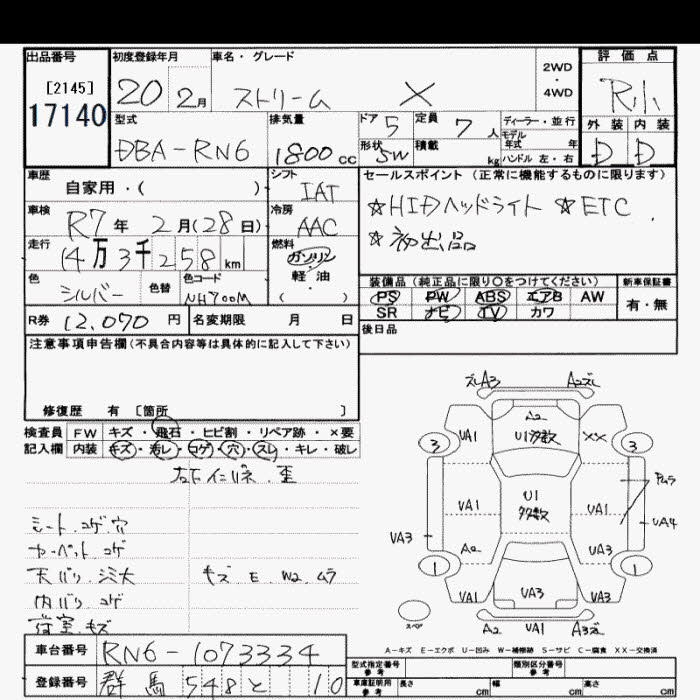 出品番号
[2145]
17140
初度登録年月
20 2月
車名・グレード
ストリーム X
2WD
・
4WD
評価点
R小
外装 内装
D D
型式
DBA-RN6
排気量
1800cc
ドア 5
定員 7人
ディーラー・並行
モデル
年式 年
形状 SW
積載 kg
ハンドル 左・右
車歴
自家用・( )
シフト
IAT
セールスポイント (正常に機能するものに限ります)
☆HIDヘッドライト ☆ETC
☆初出品
車検
R7年 2月(28日)
冷房
AAC
走行
14万3千258km
燃料
ガソリン
・
軽・油
( )
色
シルバー
色替
色コード
NH700M
装備品 (純正品に限り〇をつけてください)
PS PW ABS エアB AW
SR ナビ TV カワ
新車保証書
有・無
R券 12,070円
名変期限 月 日
後日品
注意事項申告欄(不具合内容等は具体的に記入して下さい)
修復歴 有 〔箇所 〕
検査員
記入欄
FW キズ・飛石・ヒビ割・リペア跡・×要
内装 キズ・汚レ・コゲ・穴・スレ・キレ・破レ
シート.コゲ.穴
カーペット.コゲ
天バリ.シミ大
キズ E. W2. ムラ
内バリ.コゲ
荷室.キズ
ズレA3 A2ズレ
A2
UA1 U1多数 XX
3 3
UA1 U1多数 UA1
UA3 UA4
A2 UA3
1 1
UA1 UA3 UA3
スペア
A2 UA1 A3ズレ
A-キズ E-エクボ U-凹み W-補修跡 S-サビ C-腐食 XX-交換済
車台番号 RN6-1073334
登録番号 群馬 548と 10
型式指定番号
参考
類別区分番号
参考
車庫証明用
参考
長さ cm 幅 cm 高さ cm